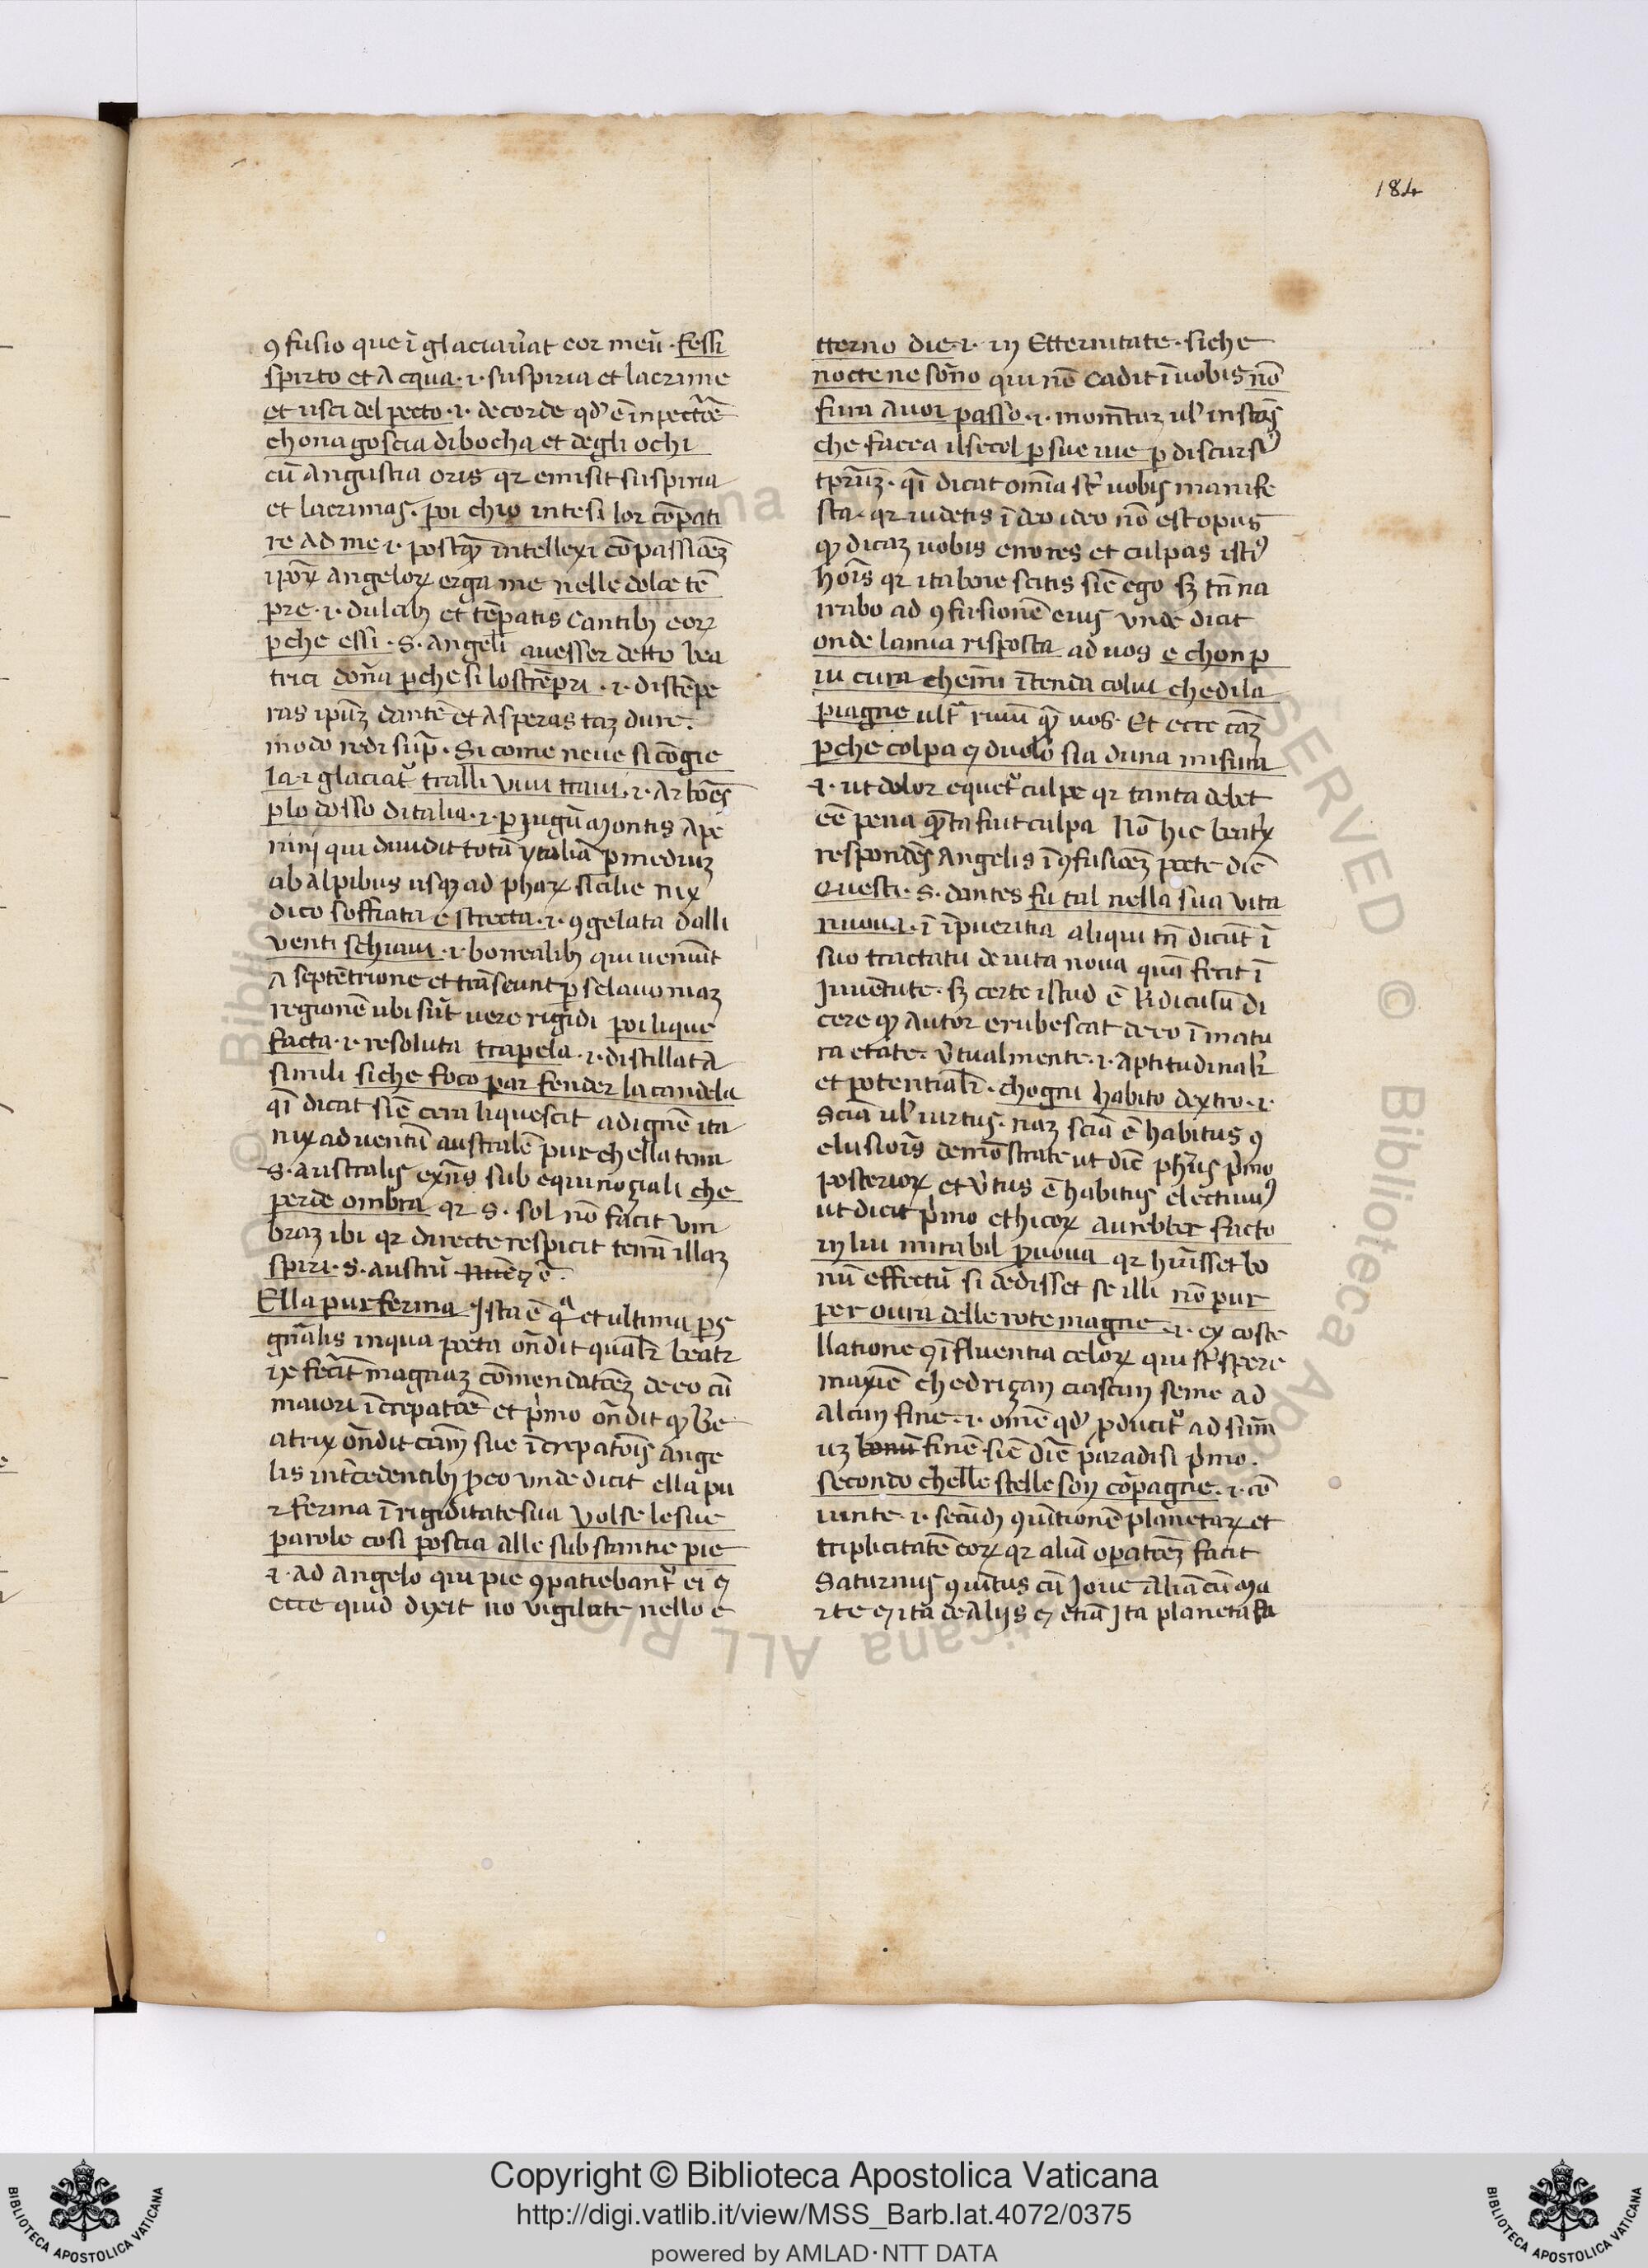 184
ꝯfusio que ī glaciav̄at cor meū. fessi
spirto et Acqua .i. suspiria et lacrime
et usci del pecto .i. de corde qd' ē in pectōe
chon agoscia di bocha et degli ochi
cū Angustia oris qr emisit suspiria
et lacrimas. poi chio intesi lor cōpati
re Ad me .i. postꝙ̄ intellexi cōpassiōeꝫ
ipoꝝ Angeloꝝ erga me nelle dolce tē
pre .i. dulcibꝫ et tēpatis cantibꝫ eoꝝ
ꝑche essi .s. angeli avesser detto bea
trici dōna ꝑche si lo stēpri .i. distēpe
ras ipūꝫ dantē et Asperas taꝫ dure.
modo redi sup̄. Si come neve si cōgie
la .i. glaciat᷑ tralli vivi travi .i. Arbōes
ꝑ lo dosso ditalia .i. ꝑ jugū Montis Ape
nini qui dividit totā ytaliā ꝑ mediuꝫ
ab alpibus usqꝫ ad phaꝝ sicilie nix
dico soffiata e strecta .i. ꝯgelata dalli
venti schiavi .i. borrealibꝫ qui veniūt
A septētrione et trāseunt ꝑ sclavoniaꝫ
regionē ubi sūt vere rigidi poi lique
facta .i. resoluta trapela .i. distillata
simili siche foco par fender la candela
qī dicat sic̄ cera liquescit ad ignē ita
nix ad ventū australē pur chella terra
.s. australis exn̄s sub equinoziali che
perde ombra qr .s. sol nō facit vm
braꝫ ibi qr directe respicit terrā illaꝫ
spiri .s. austrū
Ella pur ferma Ista ē qᵃ et ultima ꝑs
gn̄alis in qua poeta oñdit qualr̄ beatr
ix fecit magnaꝫ cōmendatōeꝫ de eo cū
maiori īcrepatōe et p̄mo oñdit ꝙ Be
atrix oñdit cām sue īcrepatōis ange
lis intc̄edentibꝫ ꝓ eo unde dicit ella pu
r ferma ī rigiditate sua volse le sue
parole cosi poscia alle substantie pie
.i. ad Angelo qui pie ꝯpatiebant᷑ ei ⁊
ecce quid dixit vo vigilate nello e
tterno die .i. in Etternitate. siche
nocte ne sōno qui nō cadit ī vobis nō
fura a voi passo .i. momētuꝫ ul' instās
che faccia il secol ꝑ sue vie ꝑ discursū
tp̄ruꝫ. qī dicat omīa sūt vobis manife
sta. qr videtis ī deo ideo nō est opus
ꝙ dicaꝫ vobis errores et culpas isti᷒
hoīs qr ita bene scitis sic̄ ego sꝫ tn̄ na
rrabo ad ꝯfusionē eius unde dicit
onde la mia risposta ad vos e chon p
iu cura che mi ītenda colui che di la
piagne ultᵃ rivū qᵃ vos. Et ecce cāꝫ
ꝑche colpa ⁊ duolo sia duna misura
.i. ut dolor equet᷑ culpe qr tanta debet
eē pena qᵃta fuit culpa Nō hic beatx̄
respondēs Angelis ī ꝯfusiōeꝫ poete dic̄
questi .s. dantes fu tal nella sua vita
nuova .i. ī īpueritia aliqui tn̄ dicūt ī
suo tractatu de vita nova quā fecit ī
juventute. sꝫ certe istud ē Ridiculū di
cere ꝙ Autor erubescat de eo ī matu
ra etate. v̄tualmente .i. Aptitudinalr̄
et potentialr̄. chogni habito dextro .i.
Sciā ul' virtus. naꝫ sciā ē habitus ꝯ
clusiōīs demōstrate ut dic̄ phūs p̄mo
posterioꝝ et v̄tus ē habitus electivu᷒
ut dicit p̄mo ethicoꝝ aurebber facto
in lui mirabil pruova qr hūisset bo
nū effectū si dedisset se illi nō pur
per ovra delle rote magne .i. ex coste
llatione ⁊ īfluentia celoꝝ qui sūt spere
maxīe che drizan ciascun seme ad
alcun fine .i. omē qd' ꝓducit᷑ ad suū
uꝫ finē sic̄ dic̄ paradisi p̄mo.
secondo chelle stelle son cōpagne .i. cō
iunte .i. secūdꝫ ꝯiūtionē planetaꝝ et
triplicitatē eoꝝ qr aliā operatōeꝫ facit
Saturnus ꝯiūtus cū Jove Aliā cū Ma
rte ⁊ ita de Aliis ⁊ etiā Ita planeta fa
Copyright © Biblioteca Apostolica Vaticana
http://digi.vatlib.it/view/MSS_Barb.lat.4072/0375
powered by AMLAD·NTT DATA
BIBLIOTECA APOSTOLICA VATICANA
BIBLIOTECA APOSTOLICA VATICANA